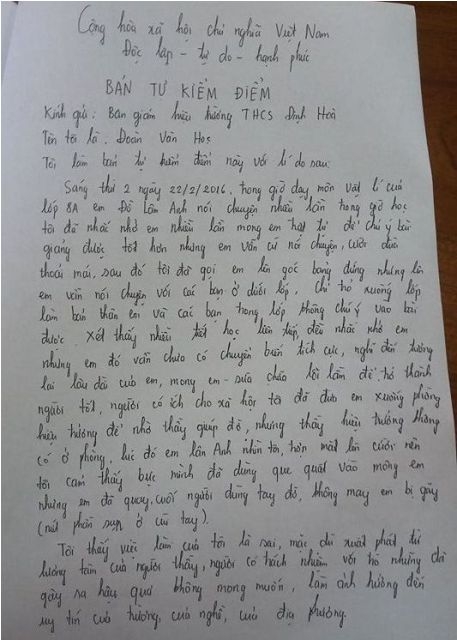 Cộng hòa xã hội chủ nghĩa Việt Nam
Độc lập - tự do - hạnh phúc
BẢN TỰ KIỂM ĐIỂM
Kính gửi: Ban giám hiệu trường THCS Định Hoà
Tên tôi là. Đoàn Văn Học
Tôi làm bản tự kiểm điểm này với lí do sau:
Sáng thứ 2 ngày 22/2/2016, trong giờ dạy môn vật lí của
lớp 8A em Đỗ Lâm Anh nói chuyện nhiều lần trong giờ học
tôi đã nhắc nhở em nhiều lần mong em trật tự để chú ý bài
giảng được tốt hơn nhưng em vẫn cứ nói chuyện, cười đùa
thoải mái, sau đó tôi đã gọi em lên góc bảng đứng nhưng lên
em vẫn nói chuyện với các bạn ở dưới lớp. Chỉ trỏ xuống lớp
làm bản thân em và các bạn trong lớp không chú ý vào bài
được. Xét thấy nhiều tiết học liên tiếp đều nhắc nhở em
nhưng em đó vẫn chưa có chuyển biến tích cực, nghĩ đến tương
lai lâu dài của em, mong em sửa chữa lỗi lầm để trở thành
người tốt, người có ích cho xã hội tôi đã đưa em xuống phòng
hiệu trưởng để nhờ thầy giúp đỡ, nhưng thấy hiệu trưởng không
có ở phòng, lúc đó em Lâm Anh nhìn tôi, mặt lại cười nên
tôi cảm thấy bực mình đã dùng que quất vào mông em
nhưng em đã quay, cuối người dùng tay đỡ, không may em bị gãy
(nứt phần sụn ở cùi tay).
Tôi thấy việc làm của tôi là sai, mặc dù xuất phát từ
lương tâm của người thầy, người có trách nhiệm với trò nhưng đã
gây ra hậu quả không mong muốn, làm ảnh hưởng đến
uy tín của trường, của nghề, của địa phương.